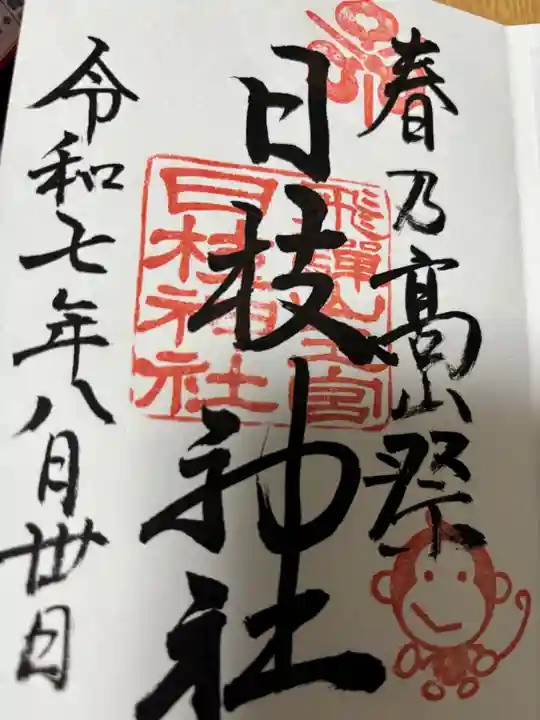 春乃高山祭
日枝神社
飛騨山王宮
日枝神社
令和七年八月卅日